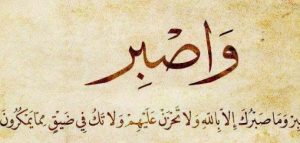 وَاصْبِر
وَمَا صَبْرُكَ إِلَّا بِاللَّهِ وَلَا تَحْزَنْ عَلَيْهِمْ وَلَا تَكُ فِي ضَيْقٍ مِمَّا يَمْكُرُونَ